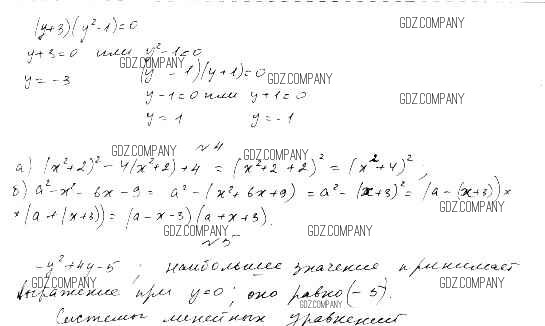 (y+3)(y²-1)=0
GDZ.COMPANY
y+3=0 или y²-1=0
GDZ.COMPANY
y=-3 (y-1)(y+1)=0
GDZ.COMPANY
y-1=0 или y+1=0
GDZ.COMPANY
y=1 y=-1
№4
GDZ.COMPANY
GDZ.COMPANY
а) (x²+2)²-4(x²+2)+4=(x²+2+2)²=(x²+4)²;
б) a²-x²-6x-9=a²-(x²+6x+9)=a²-(x+3)²=(a-(x+3))×
GDZ.COMPANY
×(a+(x+3))=(a-x-3)(a+x+3).
GDZ.COMPANY
GDZ.COMPANY
№5
-y²+4y-5; наибольшее значение принимает
GDZ.COMPANY
GDZ.COMPANY
выражение при y=0; оно равно (-5).
GDZ.COMPANY
Системы линейных уравнений